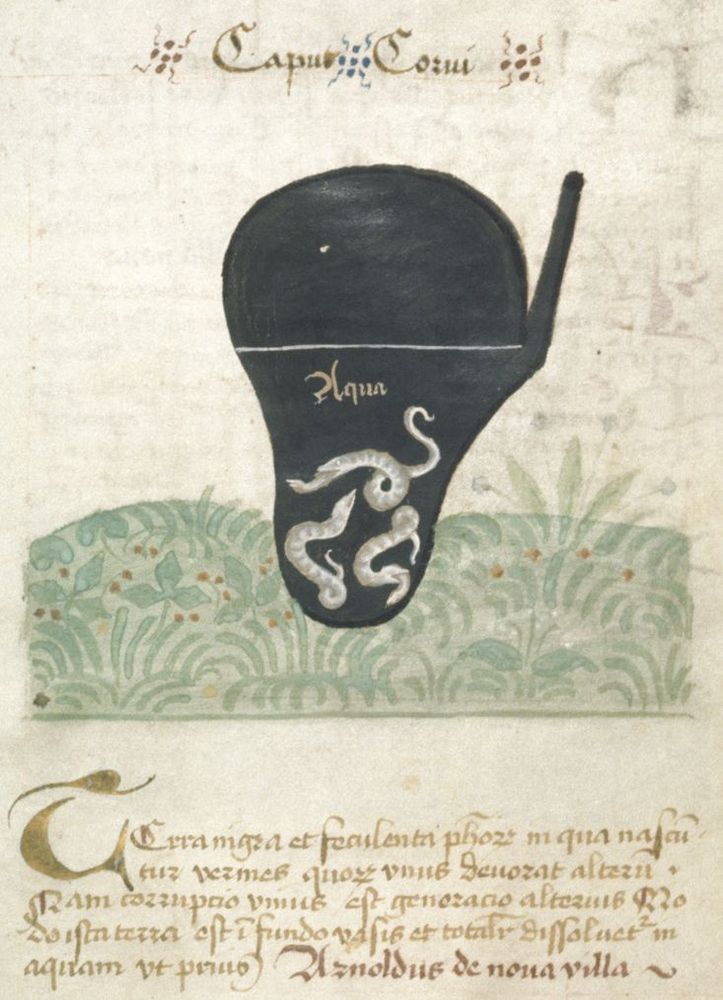 Caput Corui
Aqua
Terra nigra et feculenta ph̄orꝝ in qua nascū-
tur vermes quorꝝ vnus deuorat alterū ·
Nam corrupcio vnius est generacio alterius Mo
do ista terra est ī fundo vasis et totalr̄ dissoluetꝛ in
aquam vt prius Arnoldus de noua villa ~